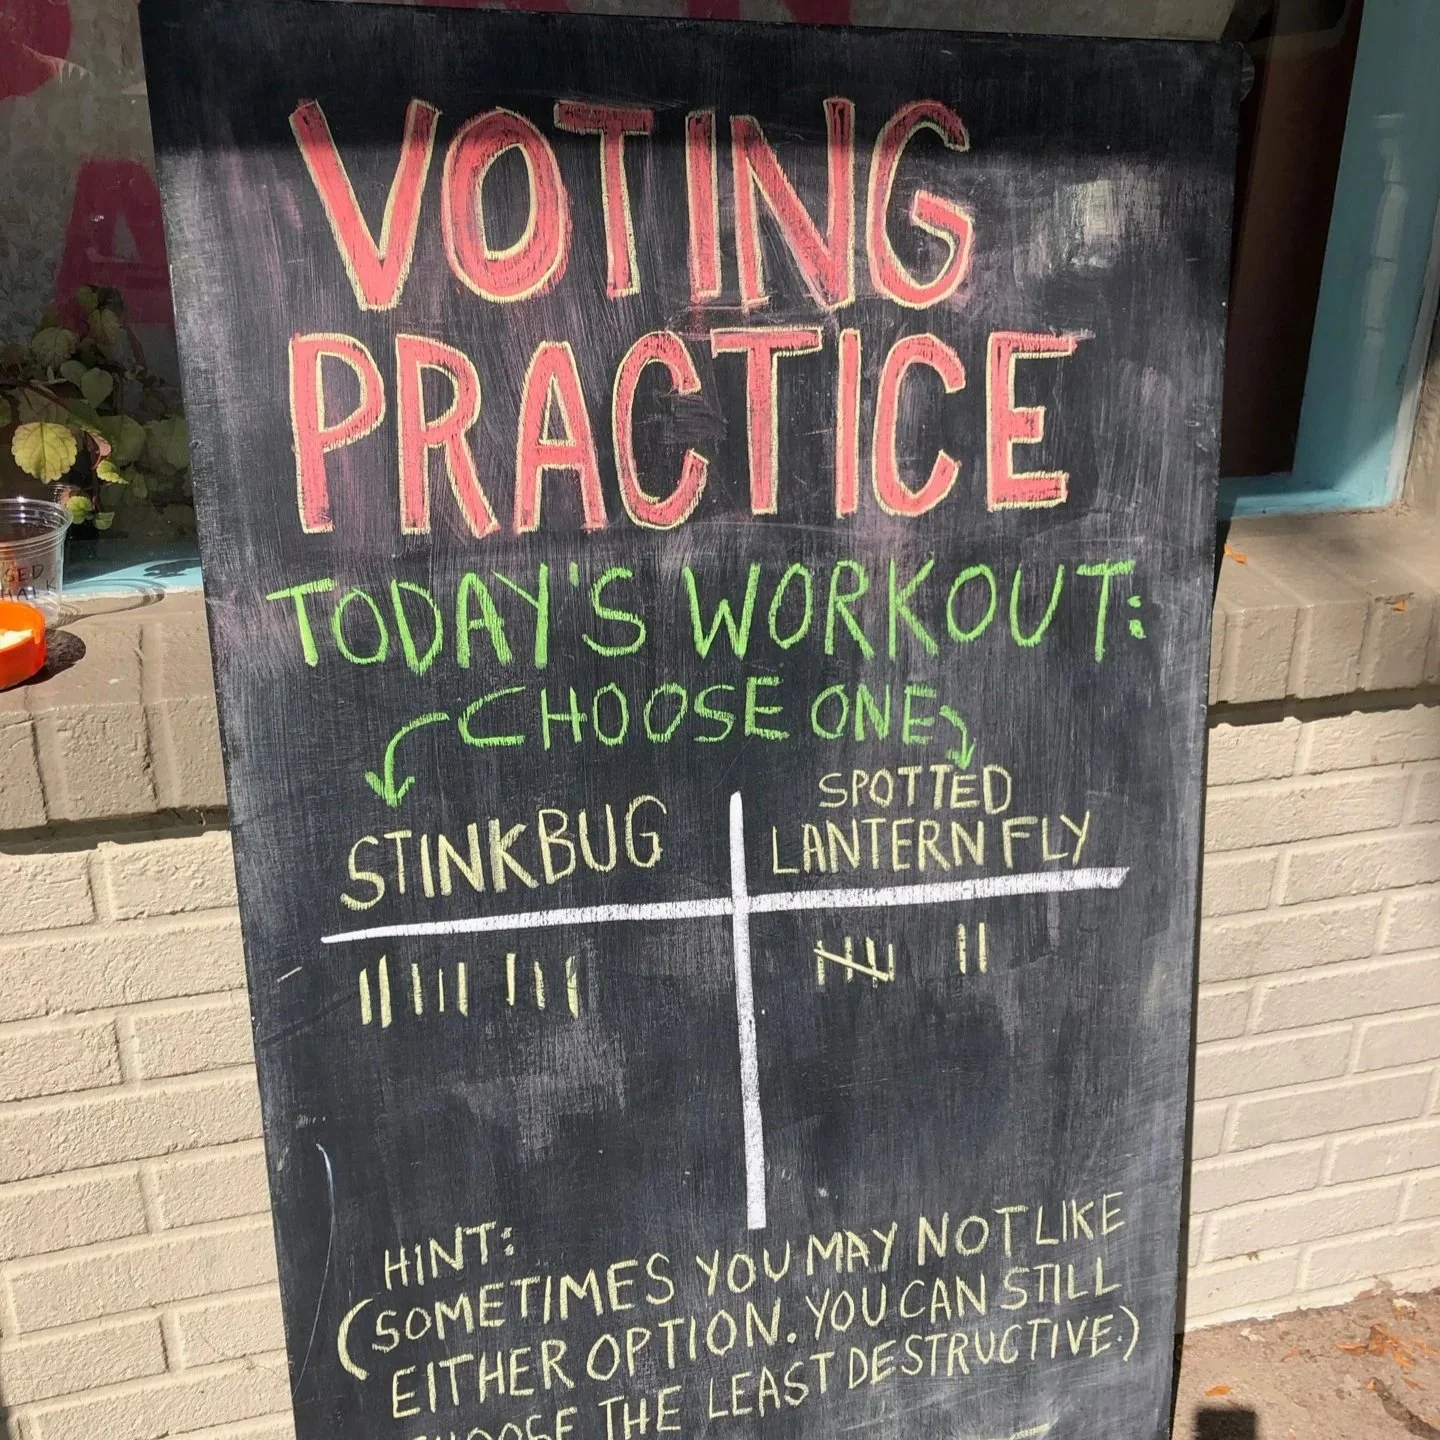 VOTING
PRACTICE
TODAY'S WORKOUT:
CHOOSE ONE
STINKBUG
SPOTTED
LANTERNFLY
HINT:
(SOMETIMES YOU MAY NOT LIKE
EITHER OPTION. YOU CAN STILL
CHOOSE THE LEAST DESTRUCTIVE.)